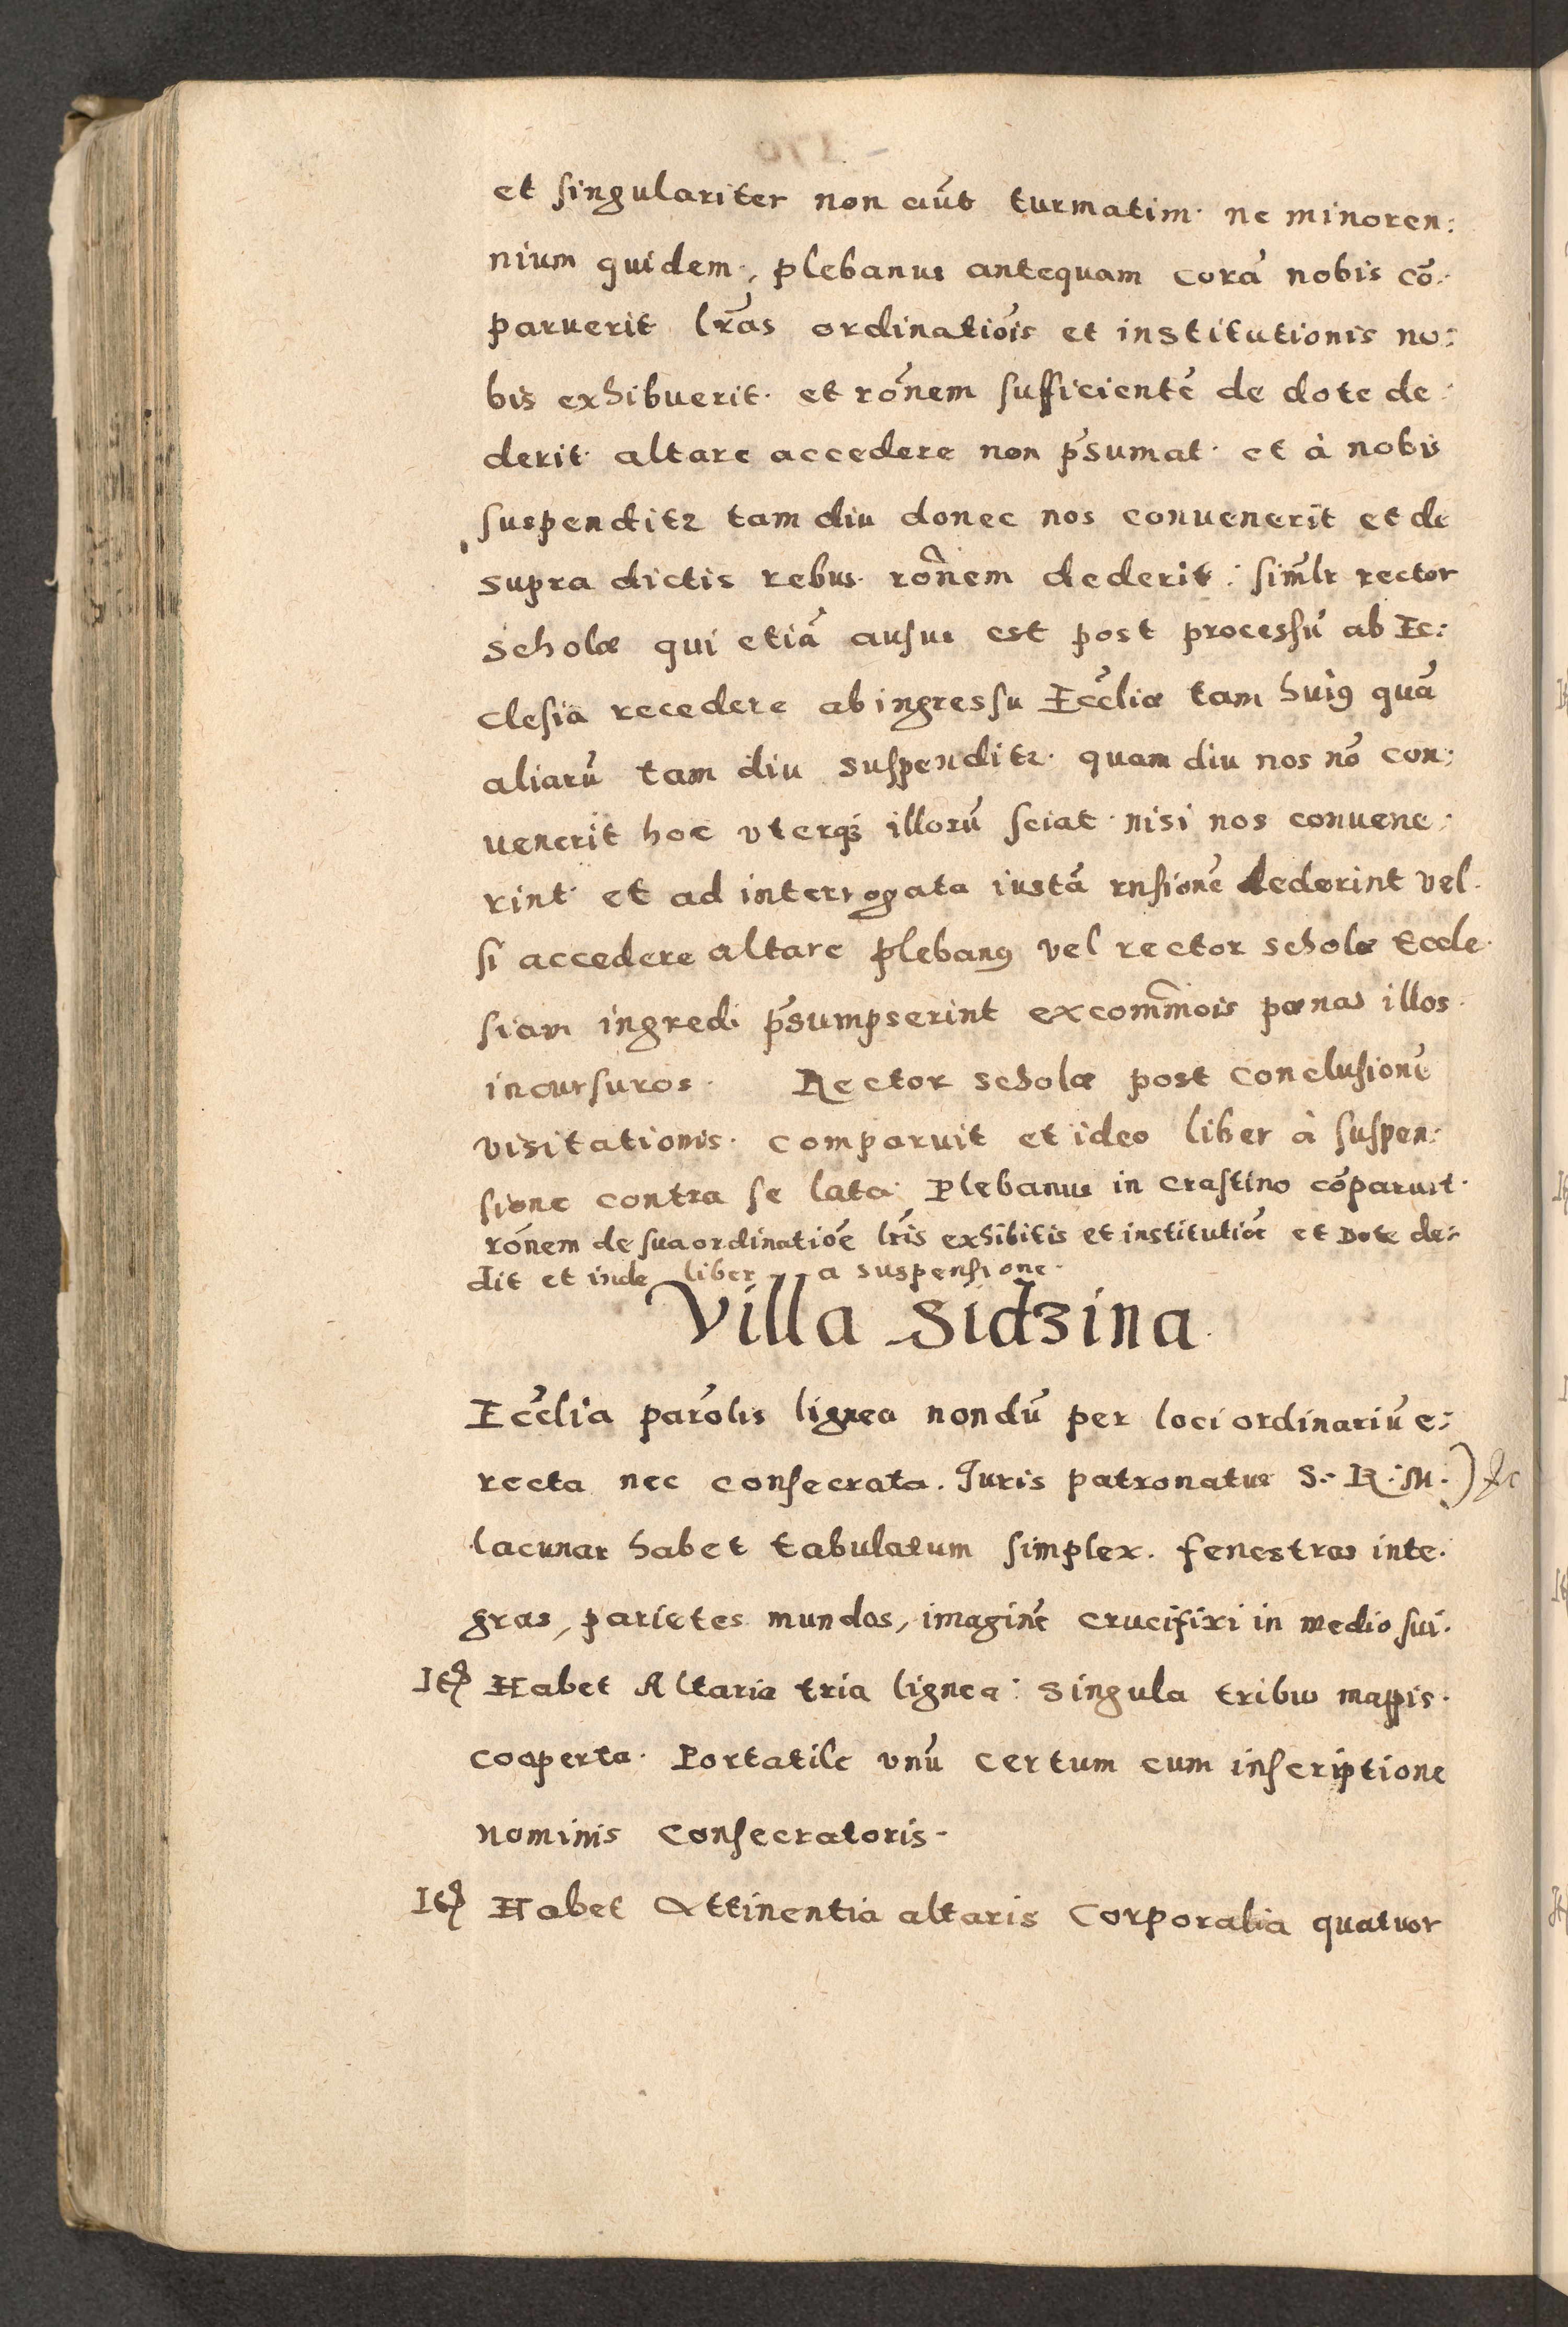 et singulariter non aūt turmatim. ne minoren:
nium quidem, plebanus antequam corā nobis cō.
paruerit lr̃as ordinatiōis et institutionis no:
bis exhibuerit. et rōnem sufficientē de dote de:
derit. altare accedere non p̄sumat. et à nobis
suspenditr tam diu donec nos convenerit et de
supra dictis rebus. rōnem dederit: simlr rector
scholæ qui etiā ausus est post processū ab Ec:
clesia recedere ab ingressu Eccl̄iæ tam huiꝰ quā
aliarū tam diu suspenditr. quam diu nos nō con:
venerit hoc vterqꝫ illorū sciat. nisi nos convene:
rint. et ad interrogata iustā rnsionē dederint vel.
si accedere altare plebanꝰ vel rector scholæ Eccle.
siam ingredi p̄sumpserint excom̄mois pœnas illos.
incursuros. Rector scholæ post conclusionē
visitationis. comparuit et ideo liber à suspen:
sione contra se lata. Plebanus in crastino cōparuit.
rōnem de sua ordinatiōe lr̄is exhibitis et institutiōe et Dote de:
dit et inde liber a suspensione.
Villa Sidzina.
Eccl̄ia parōlis lignea nondū per loci ordinariū e:
recta nec consecrata. Juris patronatus S. R. M.)
lacunar habet tabulatum simplex. fenestras inte.
gras, parietes mundos, imaginē crucifixi in medio sui.
Itē Habet Altaria tria lignea: singula tribus mappis.
cooperta. Portatile vnū certum cum inscriptione
nominis consecratoris.
Itē Habet Attinentia altaris Corporalia quatuor